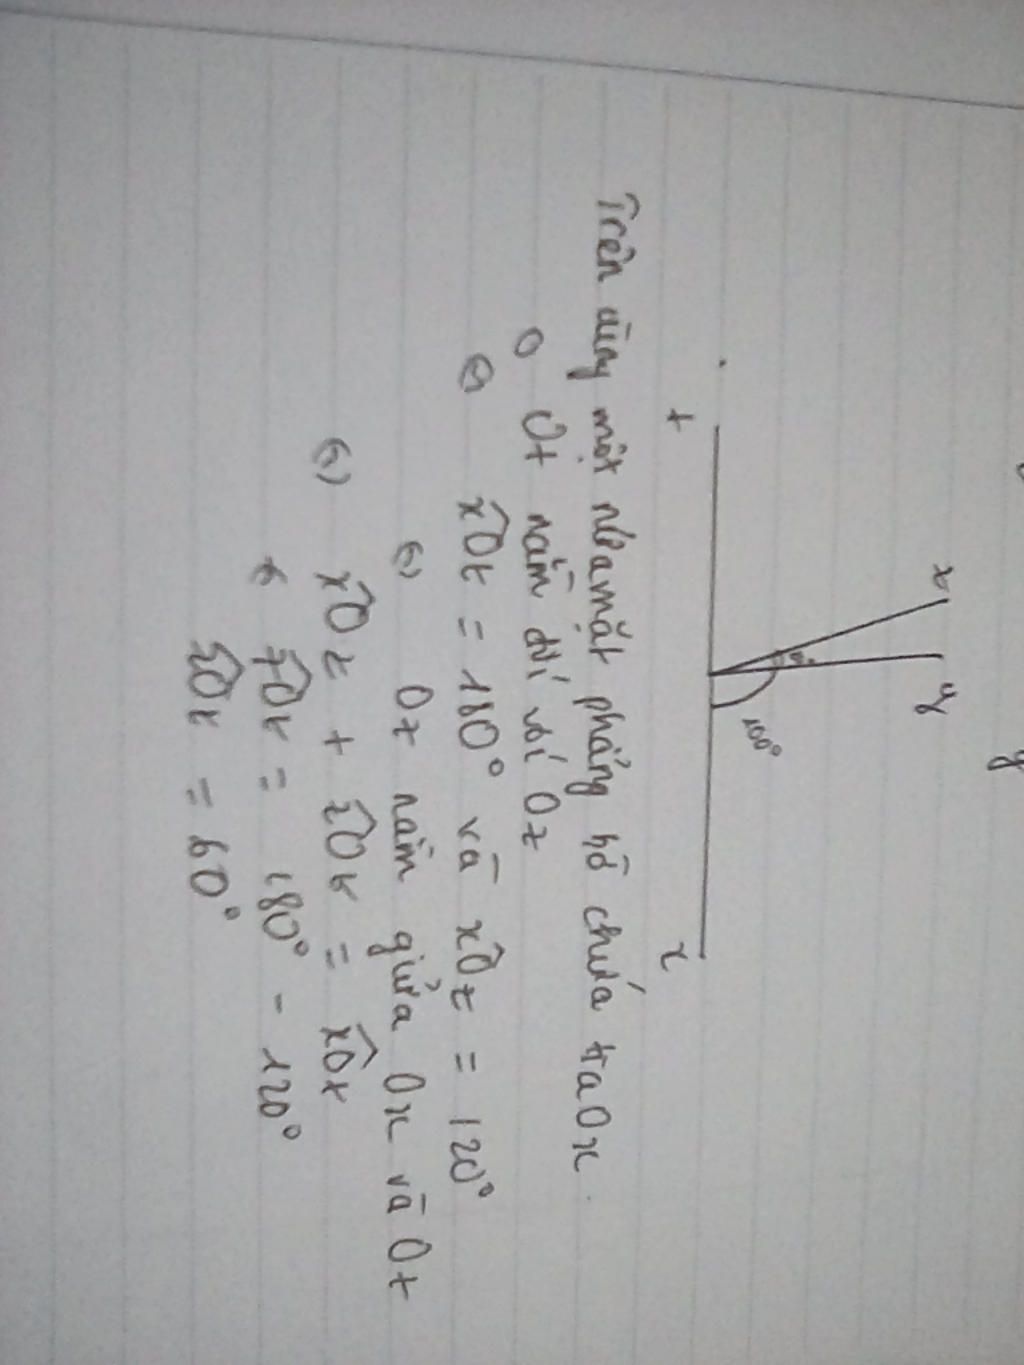 y
z
y
100°
t
x
Trên cùng một nửa mặt phẳng bờ chứa tia Ox.
Ot nằm đối với Oz
=) xOt = 180° và xOz = 120°
=) Oz nằm giữa Ox và Ot
=) xOz + zOt = xOt
zOt = 180° - 120°
zOt = 60°